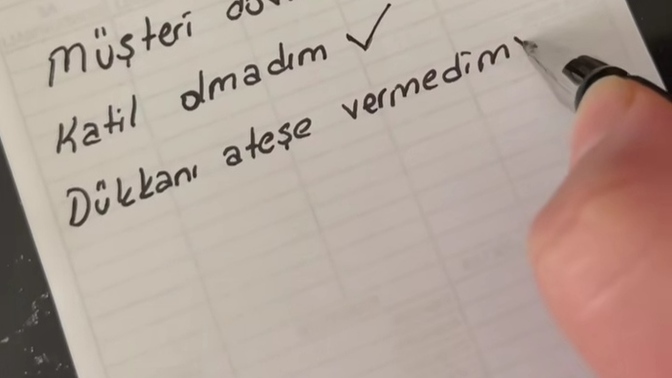 Müşteri
Katil olmadım ✓
Dükkanı ateşe vermedim